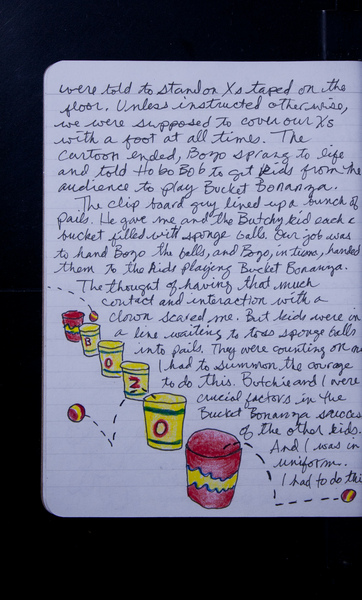 were told to stand on Xs taped on the
floor. Unless instructed otherwise,
we were supposed to cover our Xs
with a foot at all times. The
cartoon ended, Bozo sprang to life
and told HoboBob to get kids from the
audience to play Bucket Bonanza.
The clip board guy lined up a bunch of
pails. He gave me and the Butchy kid each a
bucket filled with sponge balls. Our job was
to hand Bozo the balls, and Bozo, in turn, handed
them to the kids playing Bucket Bonanza.
The thought of having that much
contact and interaction with a
clown scared me. But kids were in
a line waiting to toss sponge balls
into pails. They were counting on me
I had to summon the courage
to do this. Butchie and I were
crucial factors in the
Bucket Bonanza success
of the other kids.
And I was in
uniform.
I had to do this
B
O
Z
O